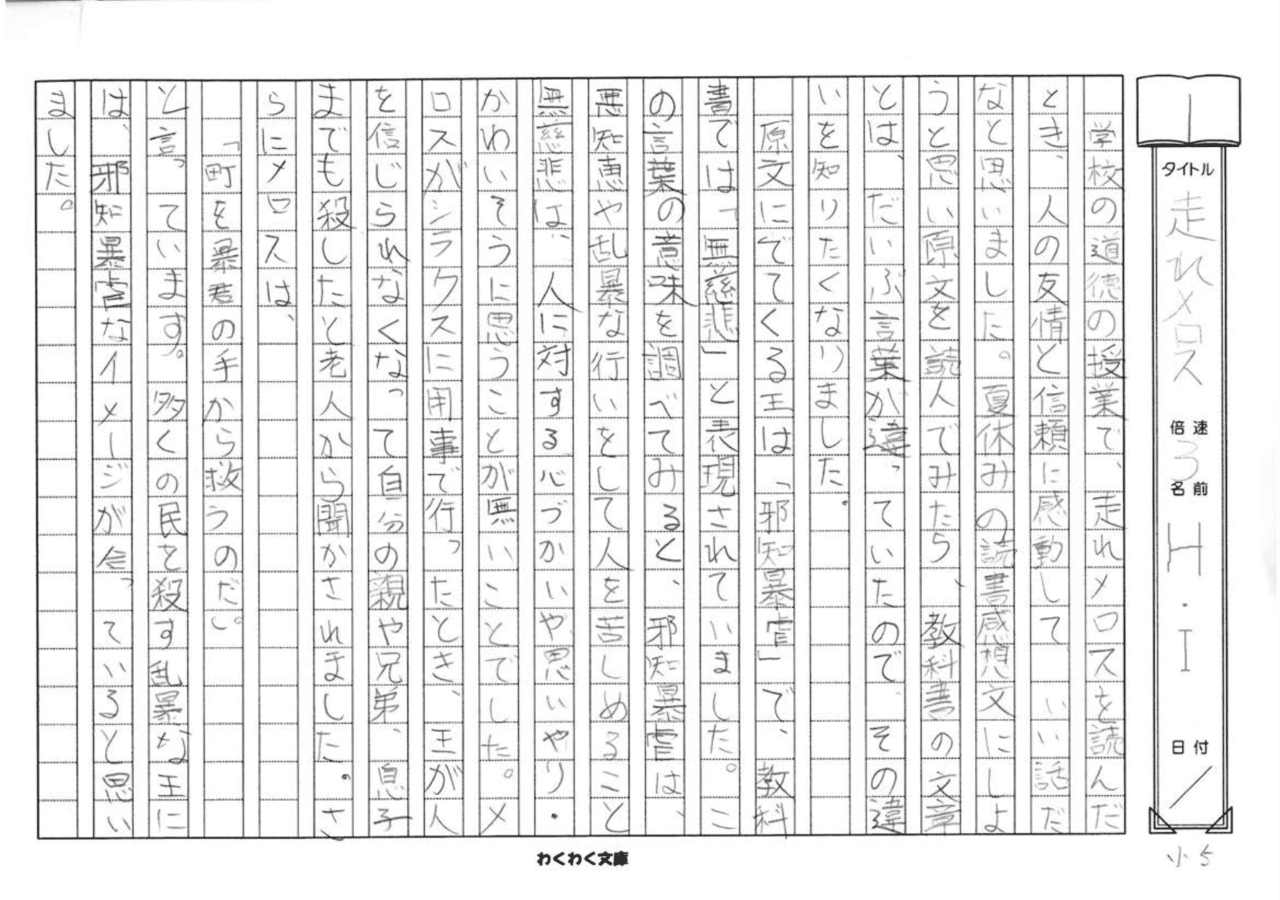 1
タイトル
走れメロス
倍速
3
名前
H.I
日付
/
小5
学校の道徳の授業で、走れメロスを読んだ
とき、人の友情と信頼に感動して、いい話だ
なと思いました。夏休みの読書感想文にしよ
うと思い原文を読んでみたら、教科書の文章
とは、だいぶ言葉が違っていたので、その違
いを知りたくなりました。
原文にでてくる王は「邪知暴虐」で、教科
書では「無慈悲」と表現されていました。こ
の言葉の意味を調べてみると、邪知暴虐は、
悪知恵や乱暴な行いをして人を苦しめること
無慈悲は、人に対する心づかいや思いやり・
かわいそうに思うことが無いことでした。メ
ロスがシラクスに用事で行ったとき、王が人
を信じられなくなって自分の親や兄弟、息子
までも殺したと老人から聞かされました。さ
らにメロスは、
「町を暴君の手から救うのだ。」
と言っています。多くの民を殺す乱暴な王に
は、邪知暴虐なイメージが合っていると思い
ました。
わくわく文庫